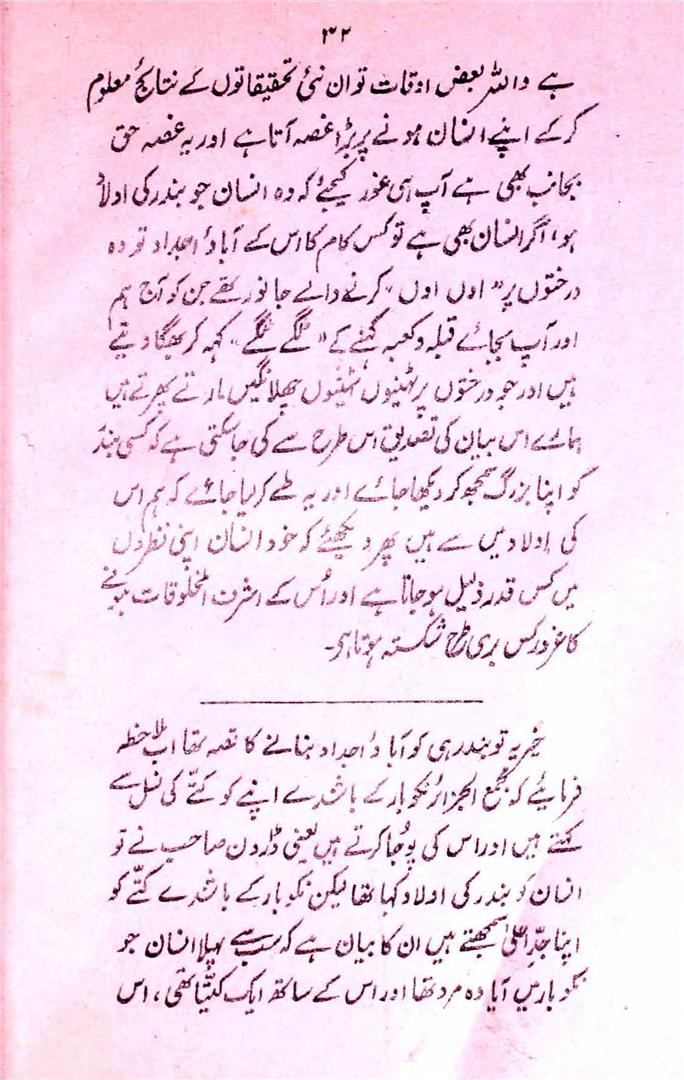 ۳۲
ہے واللہ بعض اوقات تو ان نئی تحقیقاتوں کے نتائج معلوم
کرکے اپنے انسان ہونے پر بڑا غصہ آتا ہے اور یہ غصہ حق
بجانب بھی ہے آپ ہی غور کیجئے کہ وہ انسان جو بندر کی اولاد
ہو، اگر انسان بھی ہے تو کس کام کا اس کے آباؤ اجداد تو وہ
درختوں پر "اوں اوں" کرنے والے جانور تھے جن کو آج ہم
اور آپ بجائے قبلہ و کعبہ کہنے کے "لگے لگے" کہہ کر بھگا دیتے
ہیں اور جو درختوں پر ٹہنیوں ٹہنیوں چھلانگیں مارتے پھرتے ہیں
ہمارے اس بیان کی تصدیق اس طرح سے کی جاسکتی ہے کہ کسی بندر
کو اپنا بزرگ سمجھ کر دیکھا جائے اور یہ طے کر لیا جائے کہ ہم اس
کی اولاد میں سے ہیں پھر دیکھئے کہ خود انسان اپنی نظروں
میں کس قدر ذلیل ہو جاتا ہے اور اُس کے اشرف المخلوقات ہونے
کا غرور کس بری طرح شکستہ ہوتا ہی۔
خیر یہ تو بندر ہی کو آباؤ اجداد بنانے کا قصہ تھا اب ملاحظہ
فرمائیے کہ مجمع الجزائر نکوبار کے باشندے اپنے کو کتّے کی نسل سے
کہتے ہیں اور اس کی پوجا کرتے ہیں یعنی ڈارون صاحب نے تو
انسان کو بندر کی اولاد کہا تھا لیکن نکوبار کے باشندے کتّے کو
اپنا جدِّ اعلیٰ سمجھتے ہیں ان کا بیان ہے کہ سب سے پہلا انسان جو
نکوبار میں آیا وہ مرد تھا اور اس کے ساتھ ایک کتیّا تھی، اس